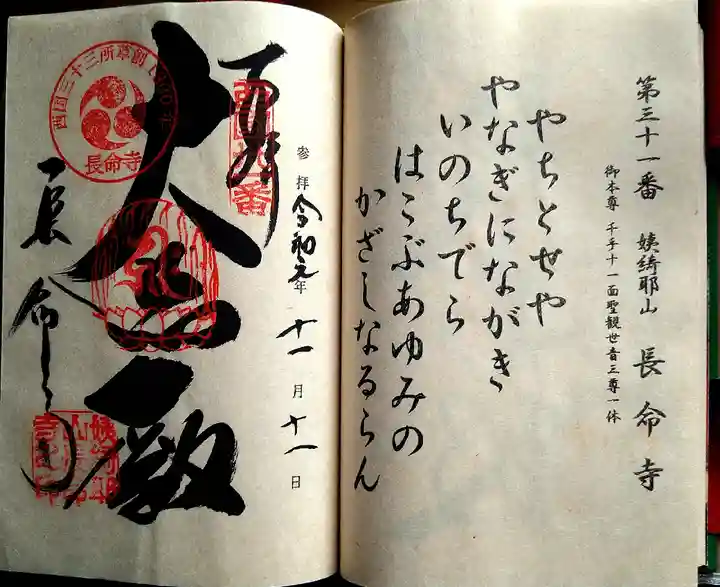 第三十一番 姨綺耶山 長命寺
御本尊 千手十一面聖観世音三尊一体
やちとせや
やなぎにながき
いのちでら
はこぶあゆみの
かざしなるらん
奉拝
参拝令和元年十一月十一日
西国三十三所草創1300年
長命寺
大悲殿
長命寺